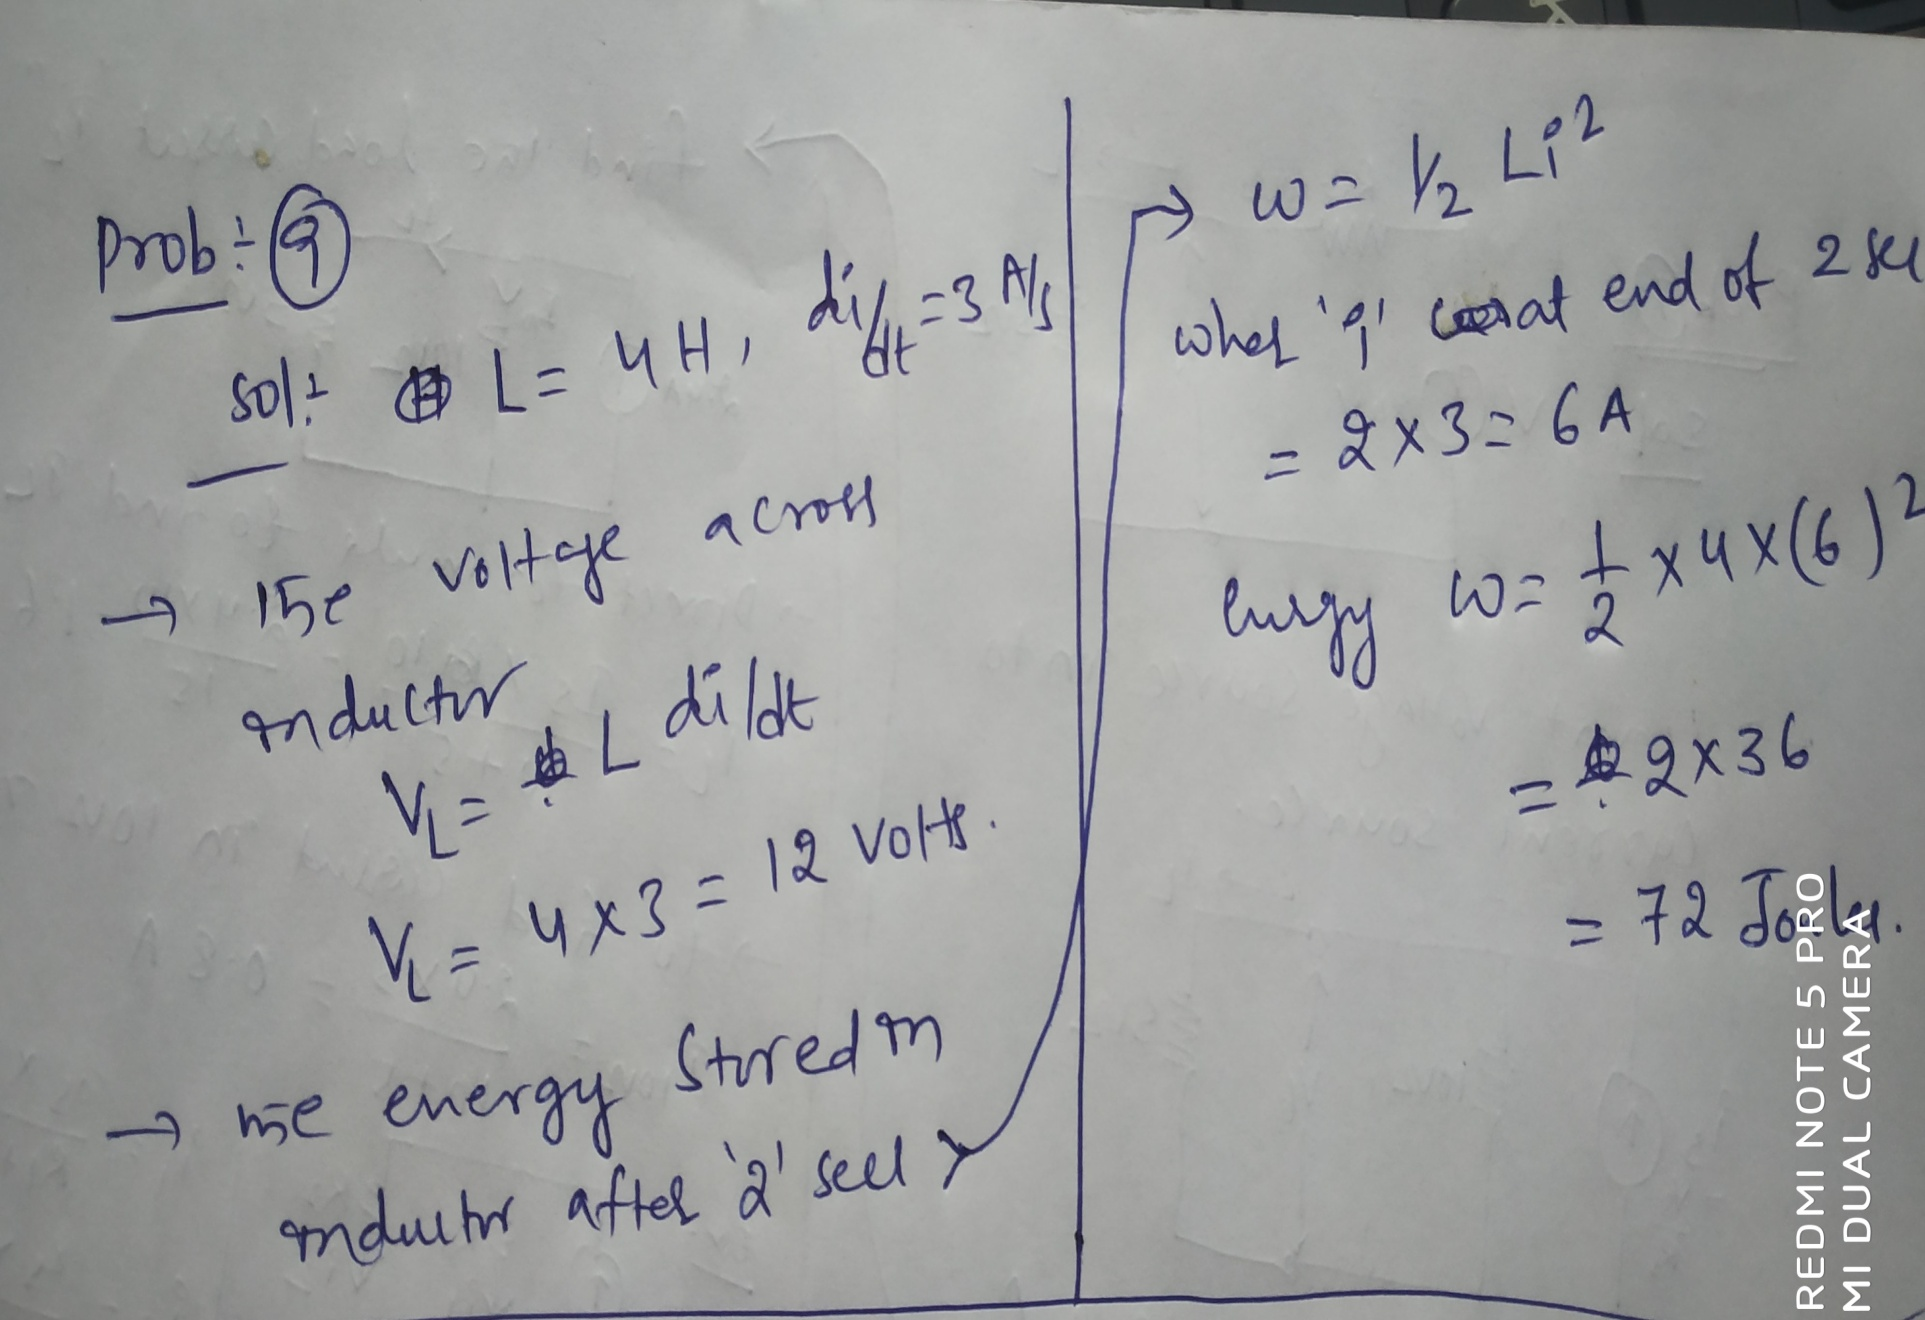 Prob:- 9
Sol:- L = 4 H, di/dt = 3 A/s
→ The voltage across
inductor
VL = L di/dt
VL = 4 x 3 = 12 Volts.
→ The energy stored in
inductor after '2' sec
→ W = 1/2 Li²
when 'i' at end of 2 sec
= 2 x 3 = 6 A
Energy W = 1/2 x 4 x (6)²
= 2 x 36
= 72 Joules.
REDMI NOTE 5 PRO
MI DUAL CAMERA